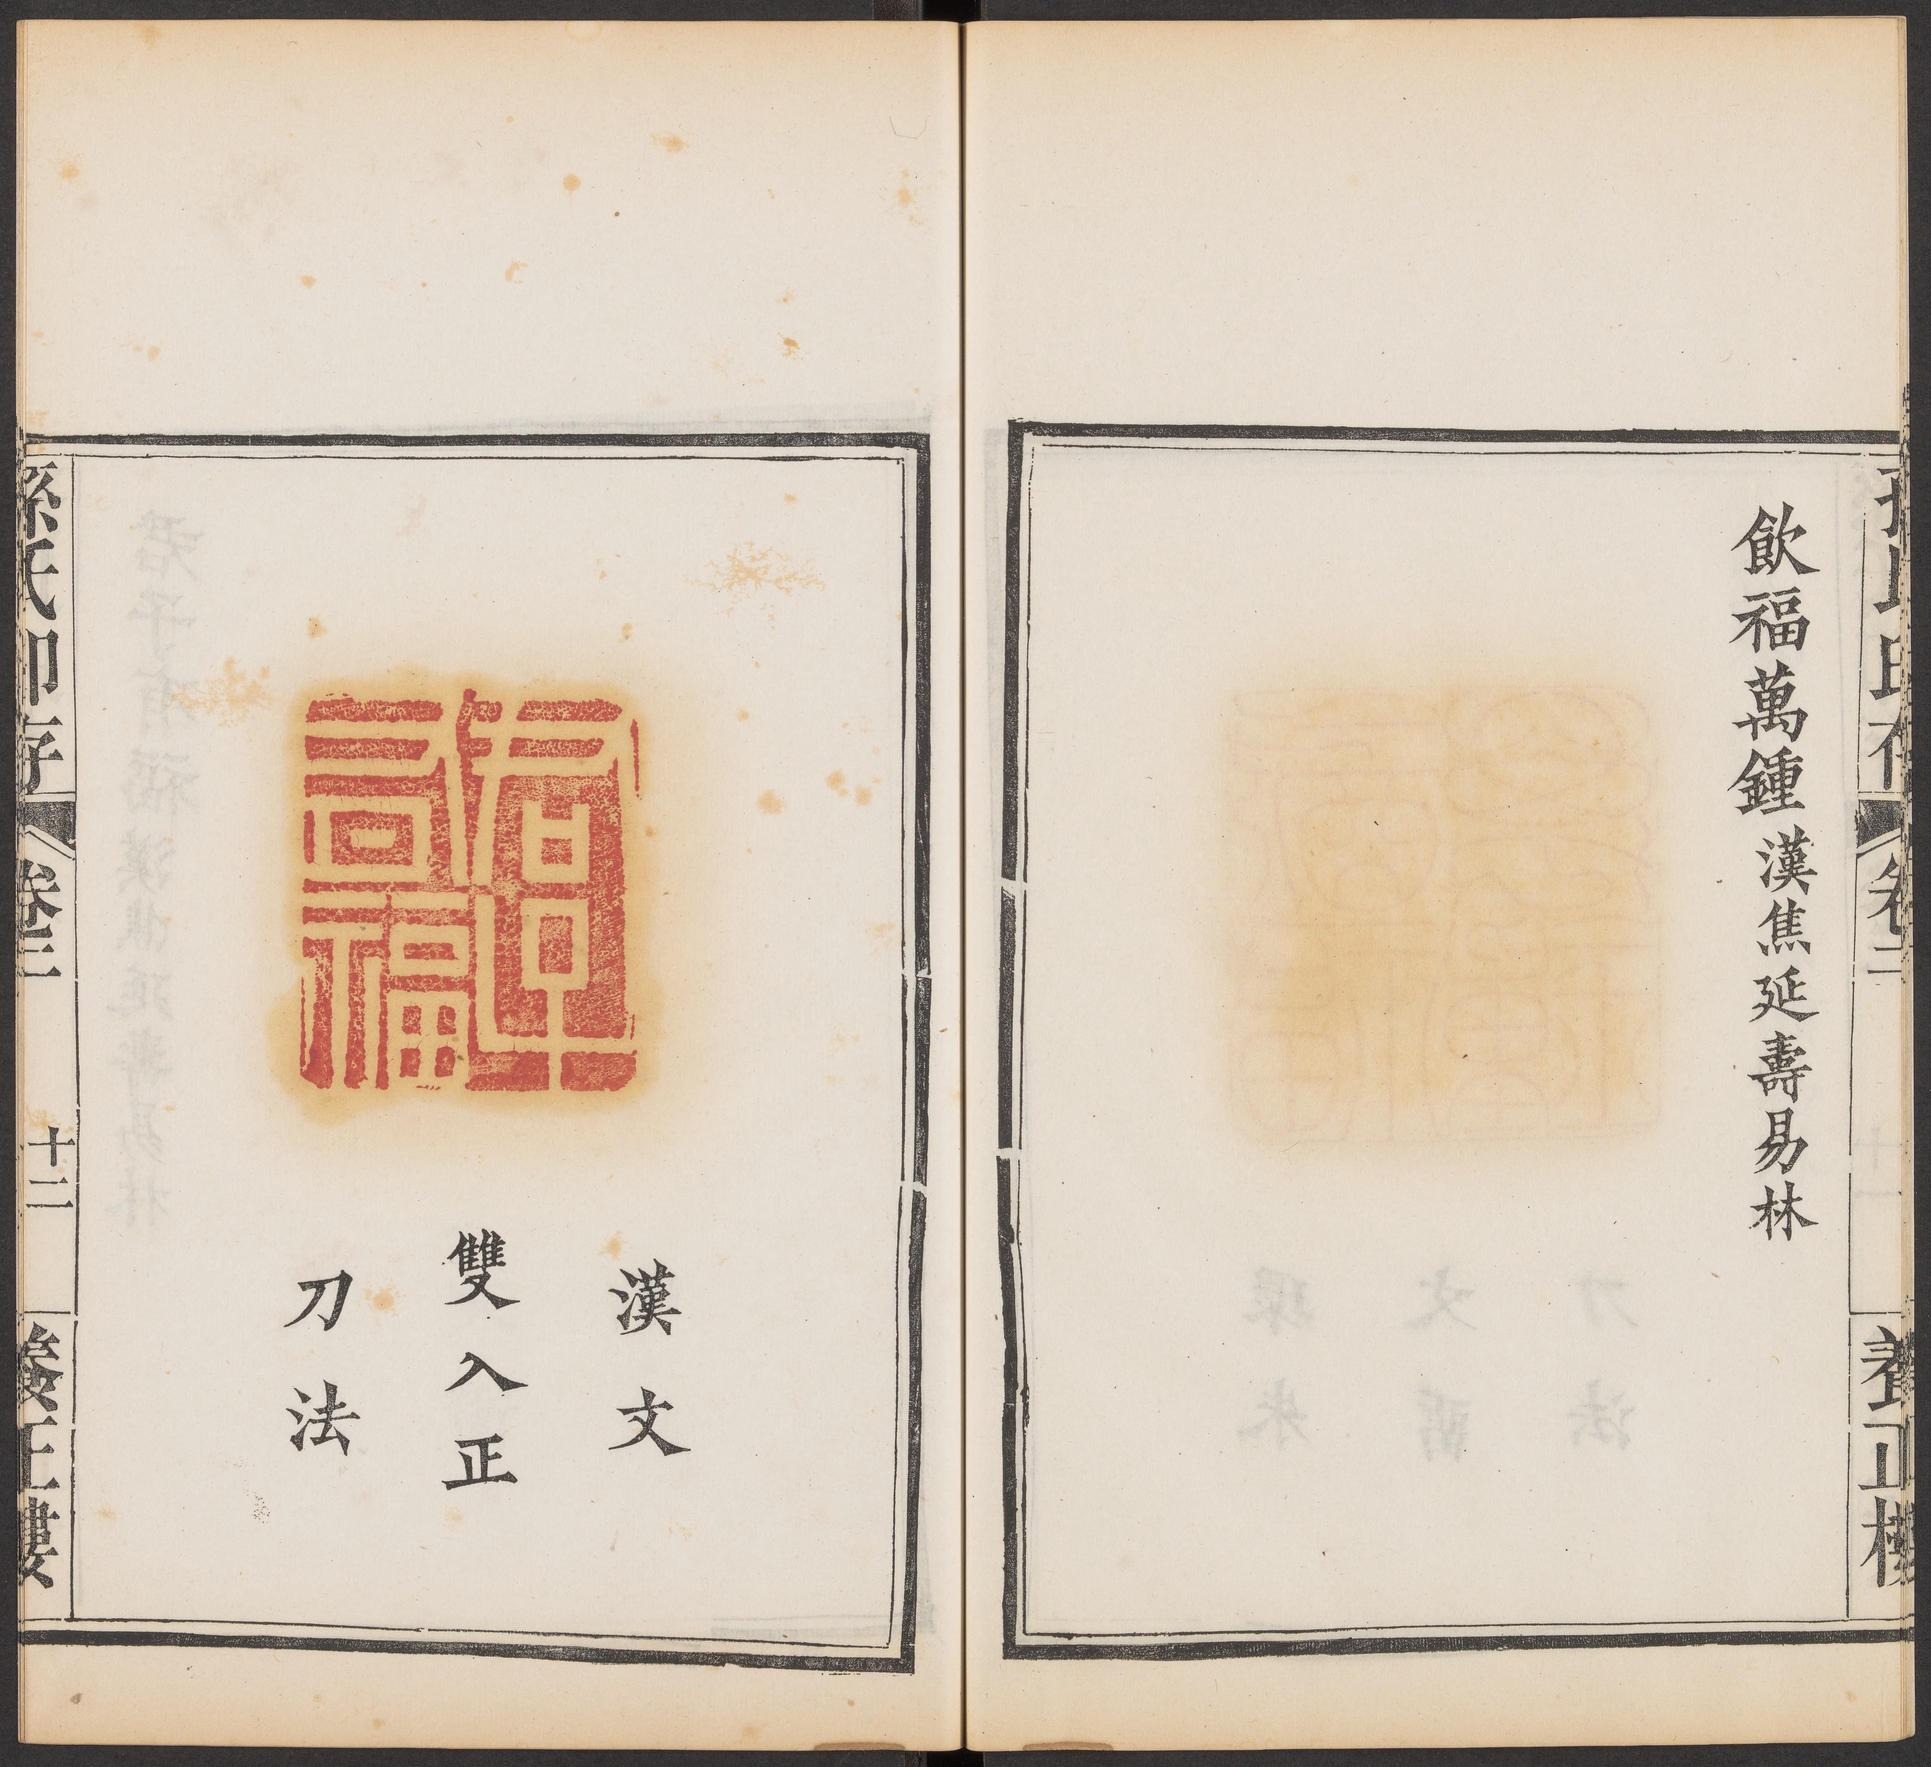 飲福萬鍾漢焦延壽易林
孫氏印存
卷二
養正樓
漢文
雙入正
刀法
孫氏印存
卷二
十二
養正樓